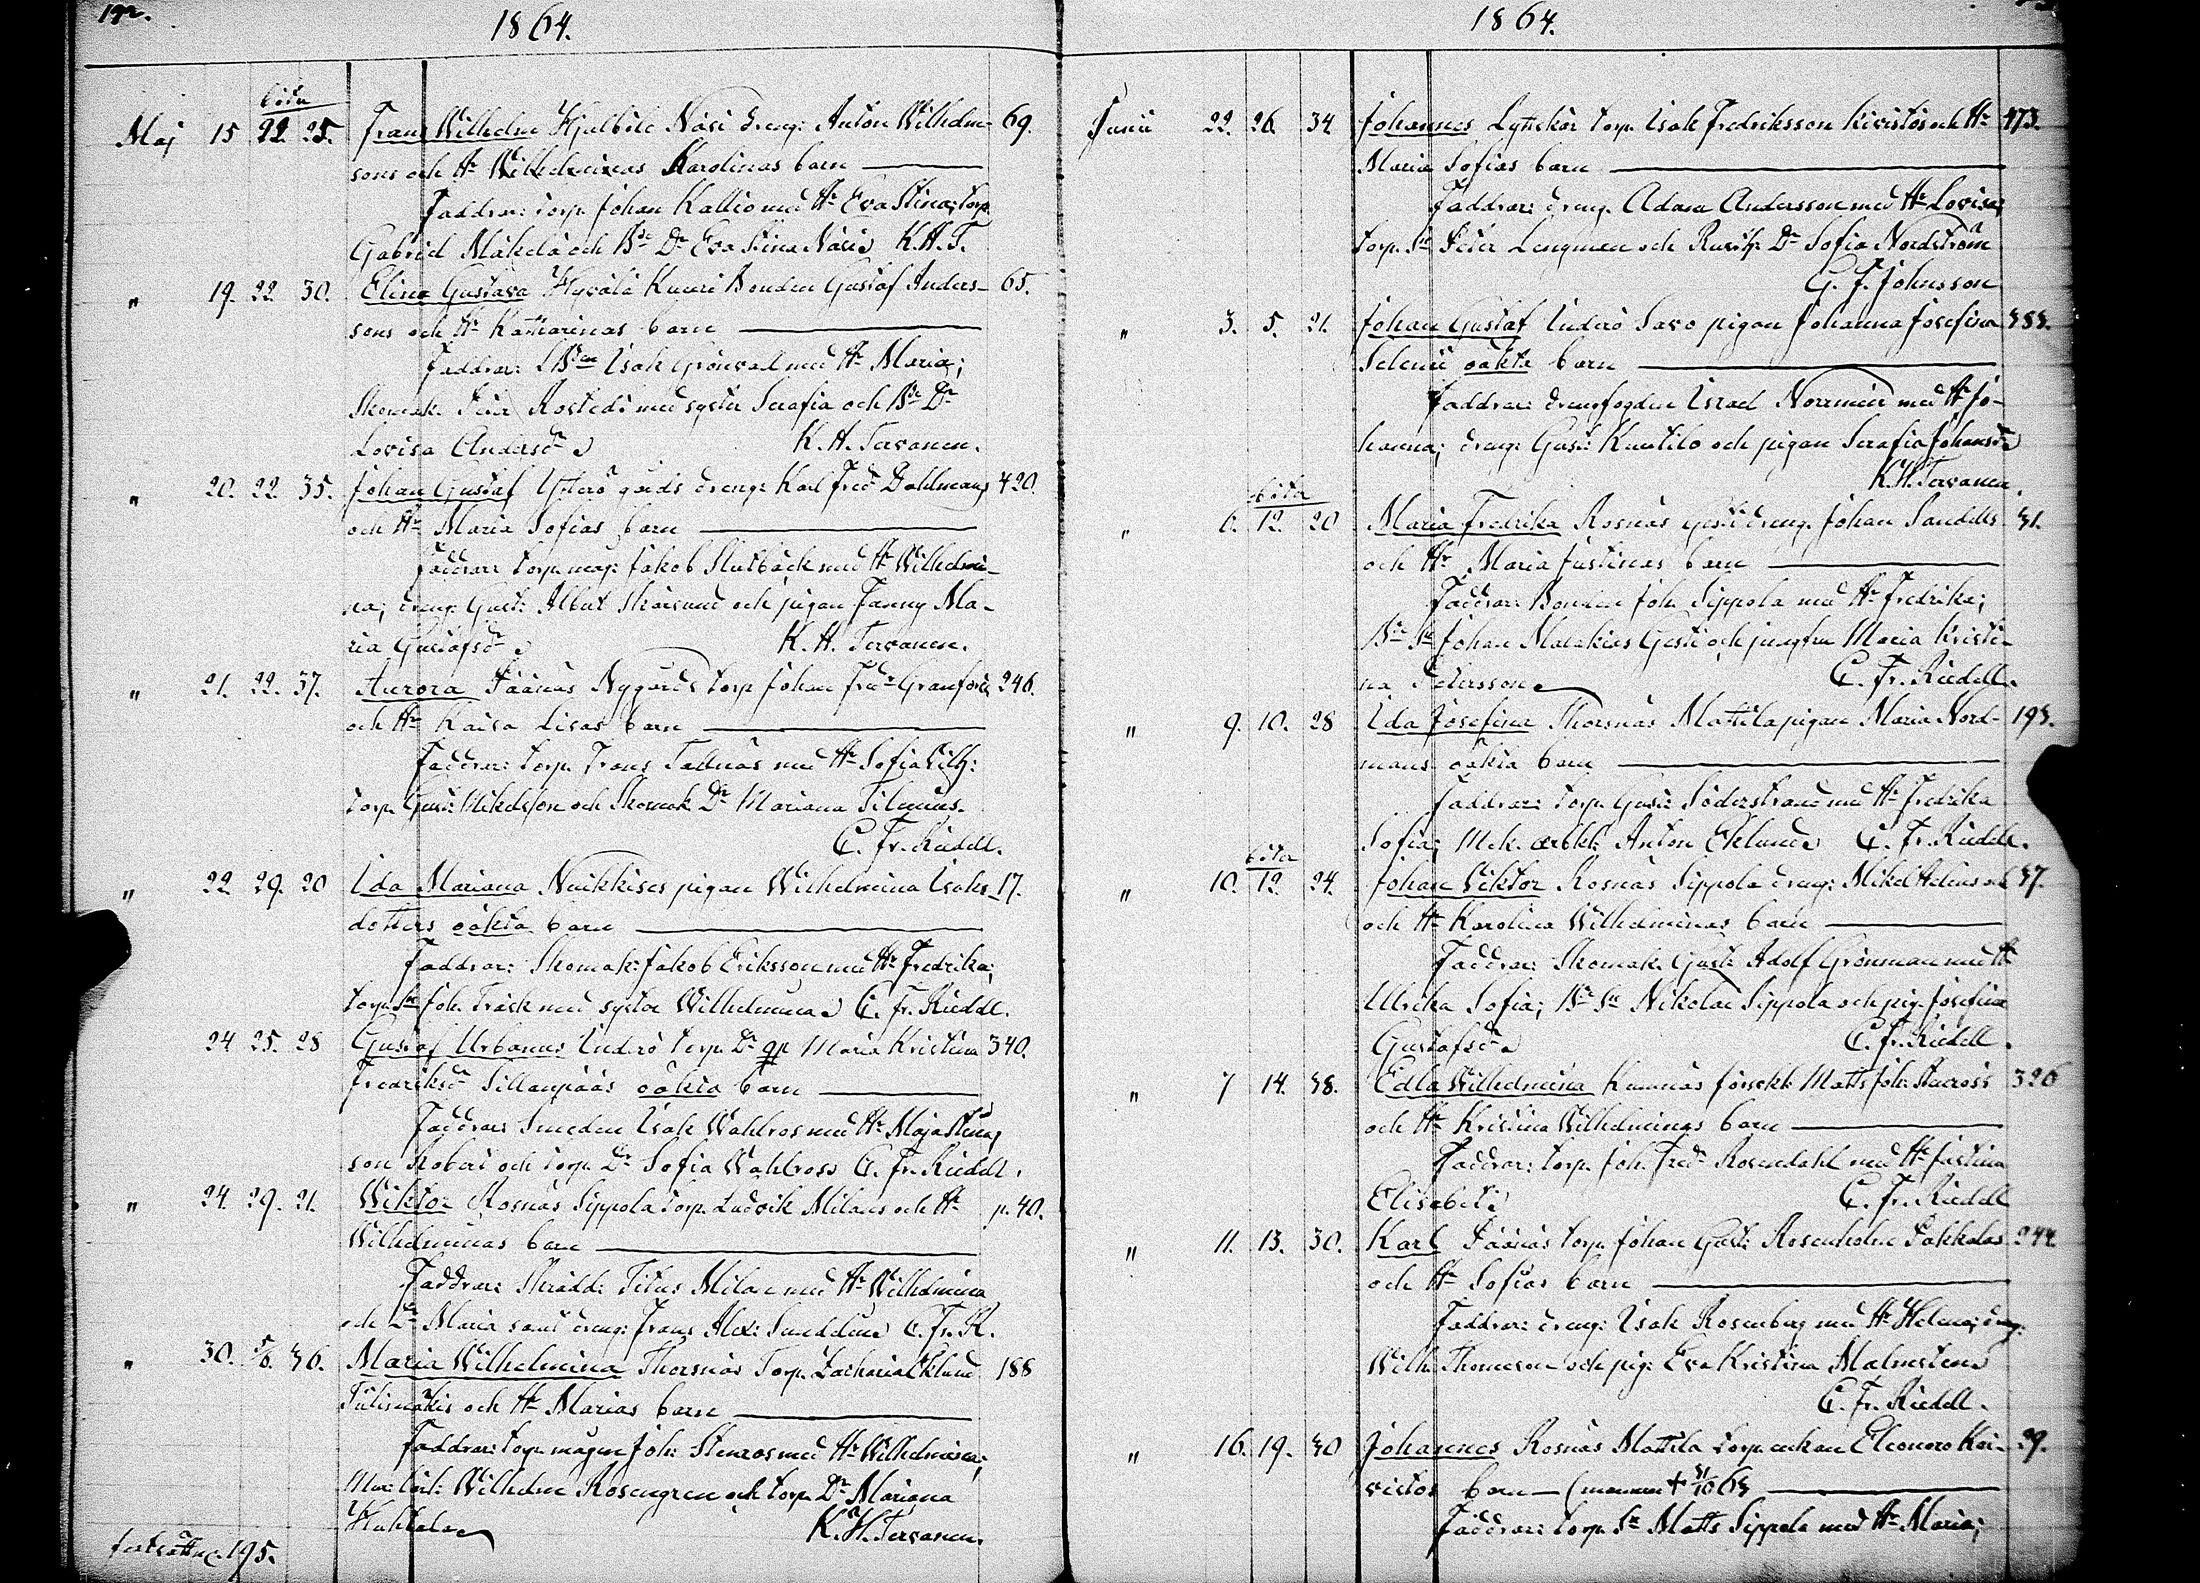 192.
1864.
båda
Maj 15 22. 25. Frans Wilhelm Hjulböle Näsi dreng: Anton Wilhelm- 69.
sons och H Wilhelminas Karolinas barn
Faddrar: torp. Johan Kallio med H Eva Stina; torp.
Gabriel Mäkelä och B D Eva Stina Näsi K. H. T.
" 19. 22. 30. Elina Gustava Hyvälä Knuri Bonden Gustaf Anders- 65.
sons och H Katharinas barn
Faddrar: Isak Grönvall med H Maria;
Skomak. Rosted med syster Serafia och B D
Lovisa Andersd K. H. Tervonen.
" 20. 22. 35. Johan Gustaf Ytterö gårds dreng: Karl Fred Dahlmans 420.
och H Maria Sofias barn
Faddrar: torp. måg: Jakob Slutbäck med H Wilhelmi-
na; dreng: Gust: Albert och pigan Fanny Ma-
ria Gustafsd K. H. Tervonen.
" 21. 22. 37. Aurora Päänäs Nygårds torp Johan Fred Granfors 246.
och H Kaisa Lisas barn
Faddrar: torp. Frans Tallnäs med H Sofia Vilh:
torp. Gust: Mikelsson och Skomak D Mariana
C. Fr. Riddell.
" 22 29. 20 Ida Mariana Nuikkises pigan Wilhelmina Isaks 17.
dotters oäkta barn
Faddrar: Skomak: Jakob Eriksson med H Fredrika;
torp. S Joh. Träsk med syster Wilhelmina C. Fr. Riddell.
24 25. 28 Gustaf Urbanus Inderö torp. D Maria Kristina 340.
Fredriksd Sillanpääs oäkta barn
Faddrar: Smeden Isak Wahlros med H Maja Stina,
son Robert och torp. D Sofia Wahlros C. Fr. Riddell.
" 24. 29. 21. Wiktor Rosnäs Sippola torp. Ludvik Milans och H p. 40.
Wilhelminas barn
Faddrar: Skrädd: Titus Milan med H Wilhelmina
och D Maria samt dreng: Frans Alex: C. Fr. R.
" 30. 5/6. 36. Maria Wilhelmina Thorsnäs Torp. Zacharias Eklund 188
och H Marias barn
Faddrar: torp. mågen Joh: Stenros med H Wilhelmina;
Wilhelm Rosengren och torp. D Mariana
Huhtala K. H. Tervonen.
fortsättn. 195.
1864.
Junii 22. 26. 34 Johannes Lyttskär torp. Isak Fredriksson Kivistös och H 473.
Maria Sofias barn
Faddrar: dreng. Adam Andersson med H Lovisa;
torp. S Peter Lengman och D Sofia Nordström
G. F. Johnsson
" 3. 5. 21. Johan Gustaf Inderö Savo pigan Johanna Josefina
Selenii oäkta barn
Faddrar: drengfogden Israel Norrmén med H Jo-
hanna; dreng: Gust: Knutilo och pigan Serafia Johansd
K. H. Tervonen.
båda
" 6. 12. 20 Maria Fredrika Rosnäs Gesti dreng. Johan Sandells 31.
och H Maria Justinas barn
Faddrar: Bonden Joh. Sippola med H Fredrika;
B S Johan Malakias Gesti och jungfru Maria Kristi-
na Petersson C. Fr. Riddell.
" 9. 10. 28 Ida Josefina Thorsnäs Mattila pigan Maria Nord- 193.
mans oäkta barn
Faddrar: torp. Gust: Söderstrand med H Fredrika
Sofia; Mek. arbkl: Anton Eklund C. Fr. Riddell.
båda
" 10. 12. 24. Johan Viktor Rosnäs Sippola dreng: Mikel Helins och 37.
och H Karolina Wilhelminas barn
Faddrar: Skomak. Gust: Adolf Grönman med H
Ulrika Sofia; B S Nikolai Sippola och pig. Josefina
Gustafsd C. Fr. Riddell.
" 7 14. 38. Edla Wilhelmina Kumnäs Matts Joh: Stenross 326
och H Kristina Wilhelminas barn
Faddrar: torp. Joh. Fred Rosendahl med H Justina
Elisabet C. Fr. Riddell
" 11. 13. 30. Karl Päänäs torp. Johan Gust: Rosenholm Pakkalas 244
och H Sofias barn
Faddrar: dreng: Isak Rosenberg med H Helena; dreng:
Wilh. Thomeson och pig: Eva Kristina Malmsten
C. Fr. Riddell.
" 16. 19. 30 Johannes Rosnäs Mattila torp. enkan Eleonora Koi- 29.
vistos barn (mannen + 31/10 63
Faddrar: torp. S Matts Sippola med H Maria;